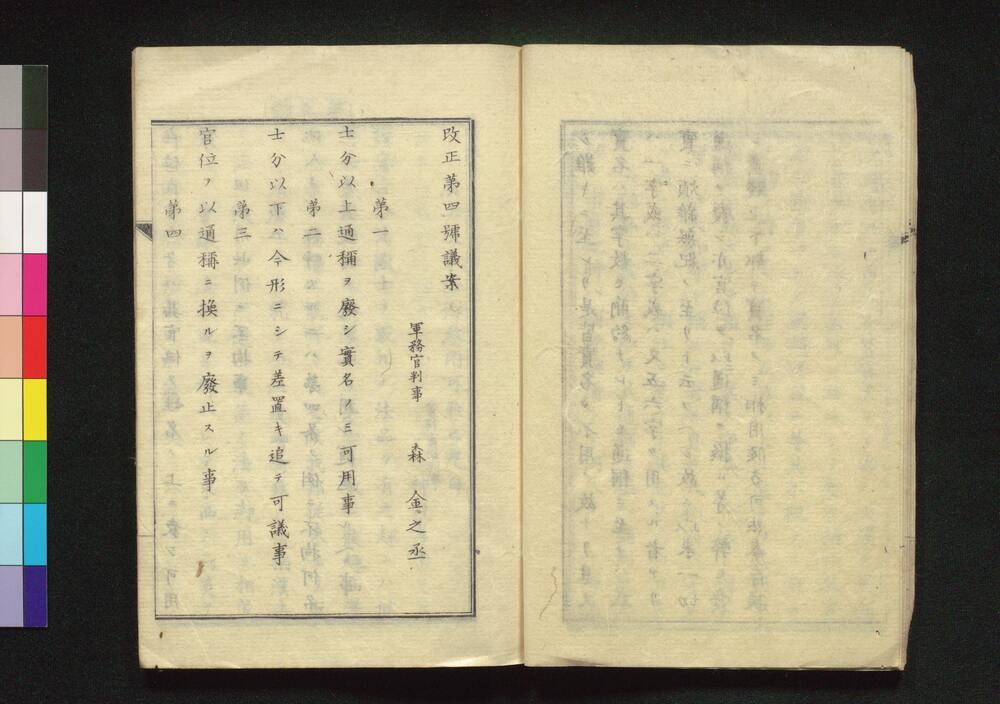 改正第四號議案
軍務官判事 森 金之丞
第一
士分以上通稱ヲ廢シ實名ノミ可用事
第二
士分以下ハ今形ニシテ差置キ追テ可議事
第三
官位ヲ以通稱ニ換ルヲ廢止スル事
第四